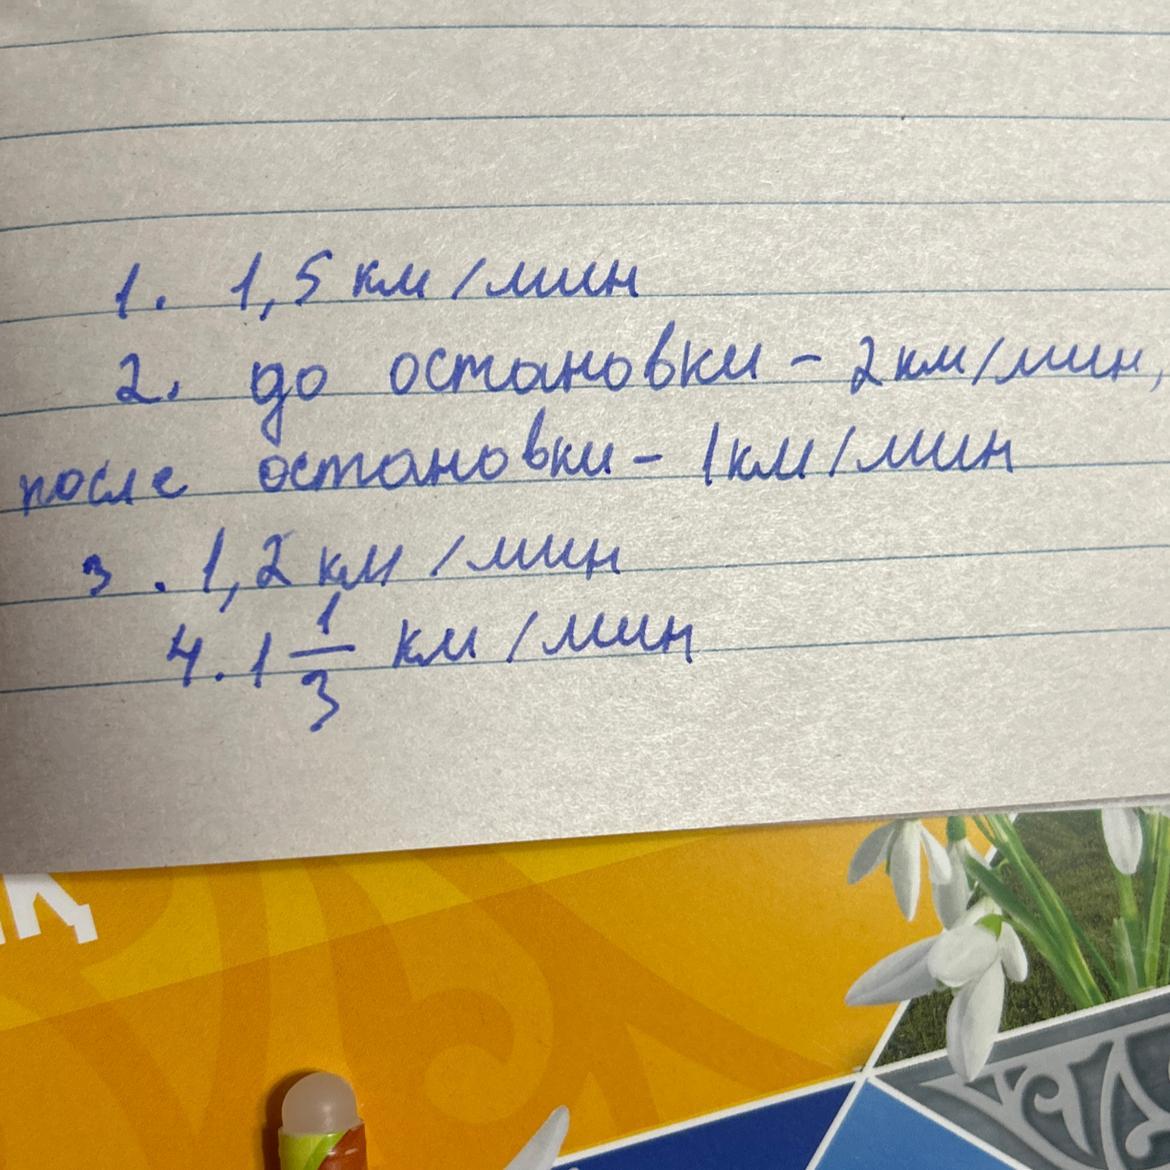 1. 1,5 км/мин
2. до остановки - 2 км/мин,
после остановки - 1 км/мин
3. 1,2 км/мин
4. 1 1/3 км/мин